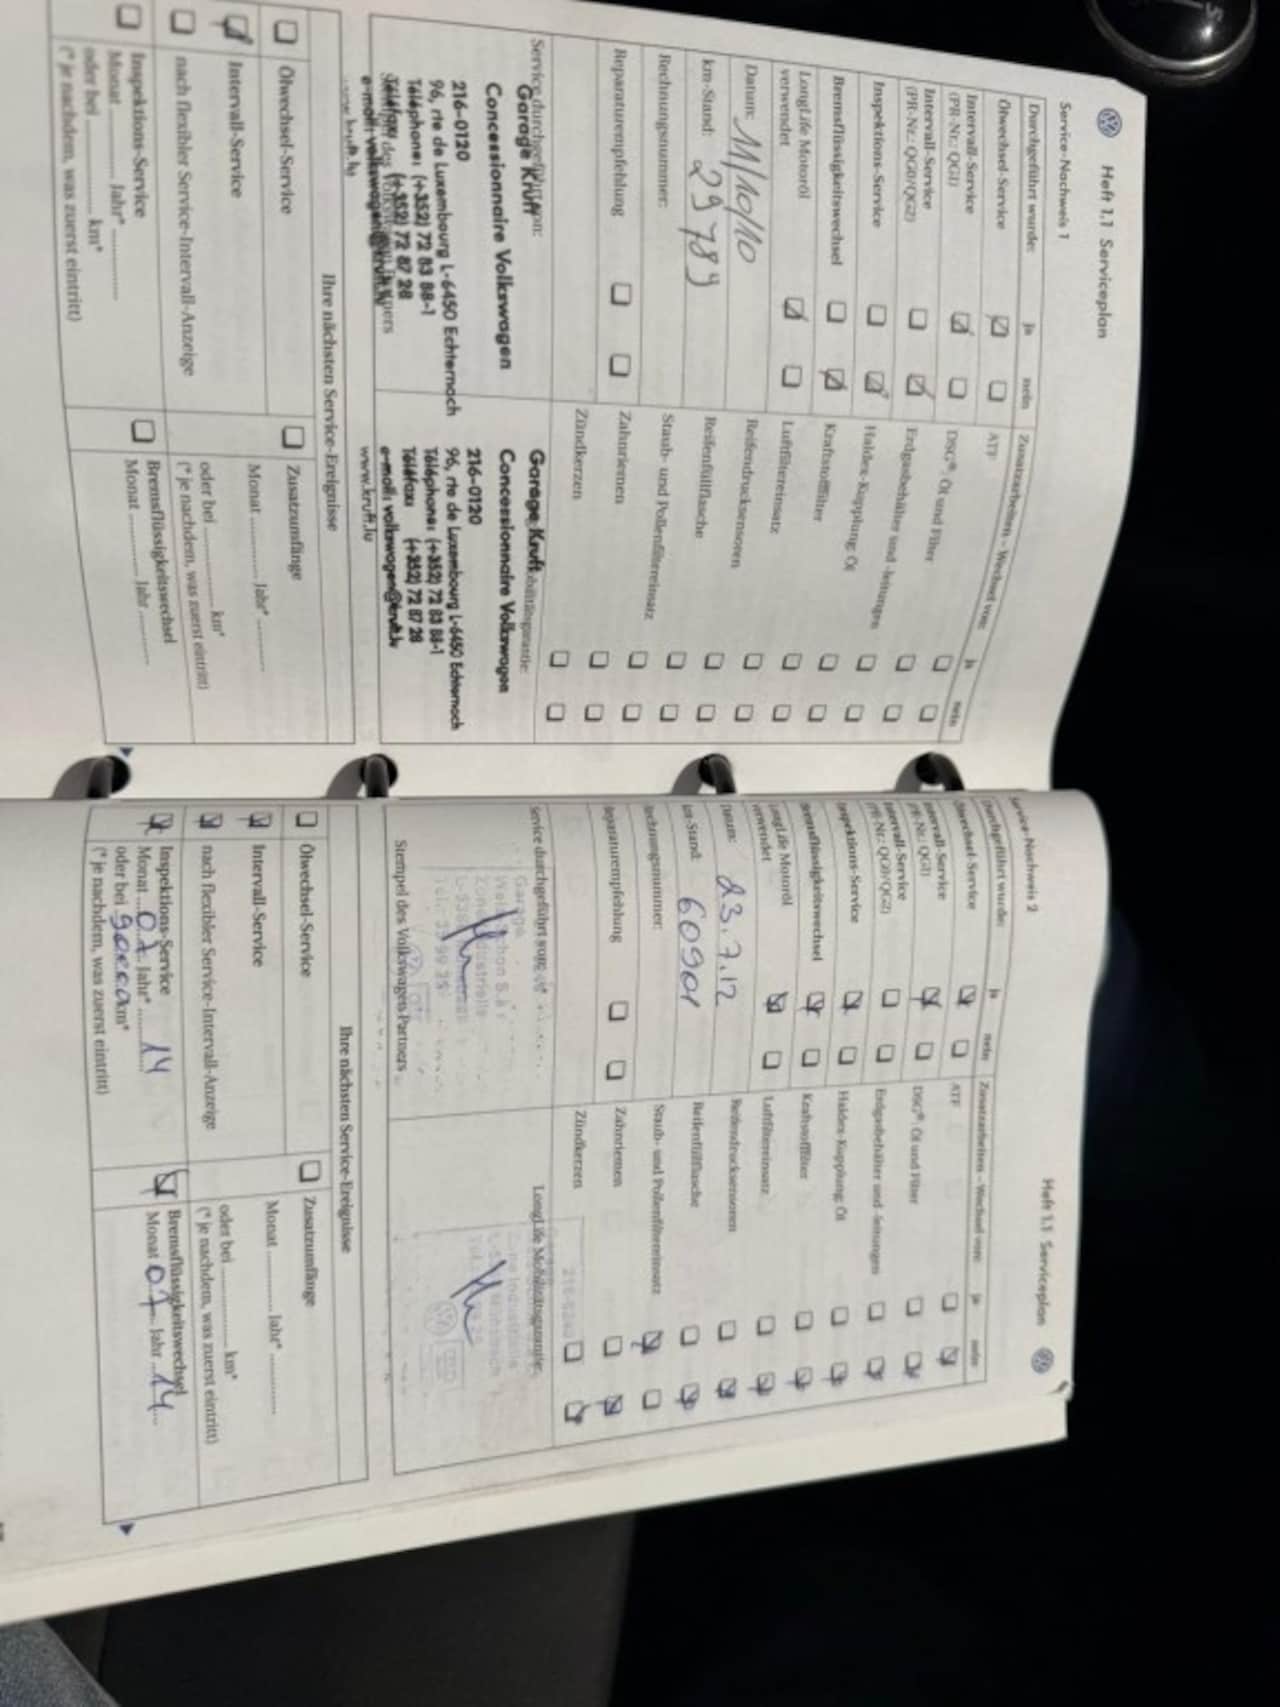 Heft 1.1 Serviceplan
Service-Nachweis 1
Durchgeführt wurde: ja nein
Ölwechsel-Service
Intervall-Service
(PR-Nr.: QG1)
Intervall-Service
(PR-Nr.: QG0/QG2)
Inspektions-Service
Bremsflüssigkeitswechsel
LongLife Motoröl
verwendet
Datum: 11/10/10
km-Stand: 29789
Rechnungsnummer:
Reparaturempfehlung
Zusatzarbeiten – Wechsel von: ja nein
ATF
DSG®: Öl und Filter
Erdgasbehälter und -leitungen
Haldex-Kupplung: Öl
Kraftstofffilter
Luftfiltereinsatz
Reifendrucksensoren
Reifenfüllflasche
Staub- und Pollenfiltereinsatz
Zahnriemen
Zündkerzen
Service durchgeführt von:
Garage Kruft
Concessionnaire Volkswagen
216-0120
96, rte de Luxembourg L-6450 Echternach
Téléphone: (+352) 72 83 88-1
Téléfax: (+352) 72 87 28
e-mail: volkswagen@kruft.lu
www.kruft.lu
Garage Kruft
Concessionnaire Volkswagen
216-0120
96, rte de Luxembourg L-6450 Echternach
Téléphone: (+352) 72 83 88-1
Téléfax: (+352) 72 87 28
e-mail: volkswagen@kruft.lu
www.kruft.lu
Ihre nächsten Service-Ereignisse
Ölwechsel-Service
Intervall-Service
nach flexibler Service-Intervall-Anzeige
Inspektions-Service
Monat ............ Jahr* ............
oder bei ............ km*
(* je nachdem, was zuerst eintritt)
Zusatzumfänge
Monat ............ Jahr* ............
oder bei ............ km*
(* je nachdem, was zuerst eintritt)
Bremsflüssigkeitswechsel
Monat ............ Jahr ............
Heft 1.1 Serviceplan
Service-Nachweis 2
Durchgeführt wurde: ja nein
Ölwechsel-Service
Intervall-Service
(PR-Nr.: QG1)
Intervall-Service
(PR-Nr.: QG0/QG2)
Inspektions-Service
Bremsflüssigkeitswechsel
LongLife Motoröl
verwendet
Datum: 23.7.12
km-Stand: 60901
Rechnungsnummer:
Reparaturempfehlung
Zusatzarbeiten – Wechsel von: ja nein
ATF
DSG®: Öl und Filter
Erdgasbehälter und -leitungen
Haldex-Kupplung: Öl
Kraftstofffilter
Luftfiltereinsatz
Reifendrucksensoren
Reifenfüllflasche
Staub- und Pollenfiltereinsatz
Zahnriemen
Zündkerzen
Service durchgeführt von:
Garage
Stempel des Volkswagen Partners
LongLife Mobilitätsgarantie:
Ihre nächsten Service-Ereignisse
Ölwechsel-Service
Intervall-Service
nach flexibler Service-Intervall-Anzeige
Inspektions-Service
Monat 07 Jahr* 14
oder bei 90000 km*
(* je nachdem, was zuerst eintritt)
Zusatzumfänge
Monat ............ Jahr* ............
oder bei ............ km*
(* je nachdem, was zuerst eintritt)
Bremsflüssigkeitswechsel
Monat 07 Jahr 14